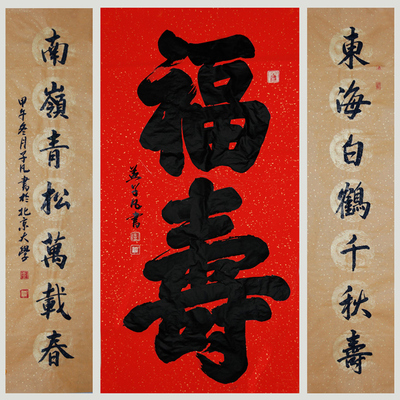 東海白鶴千秋壽
福壽
燕子凡書
南嶺青松萬載春
甲午冬月子凡書於北京大學